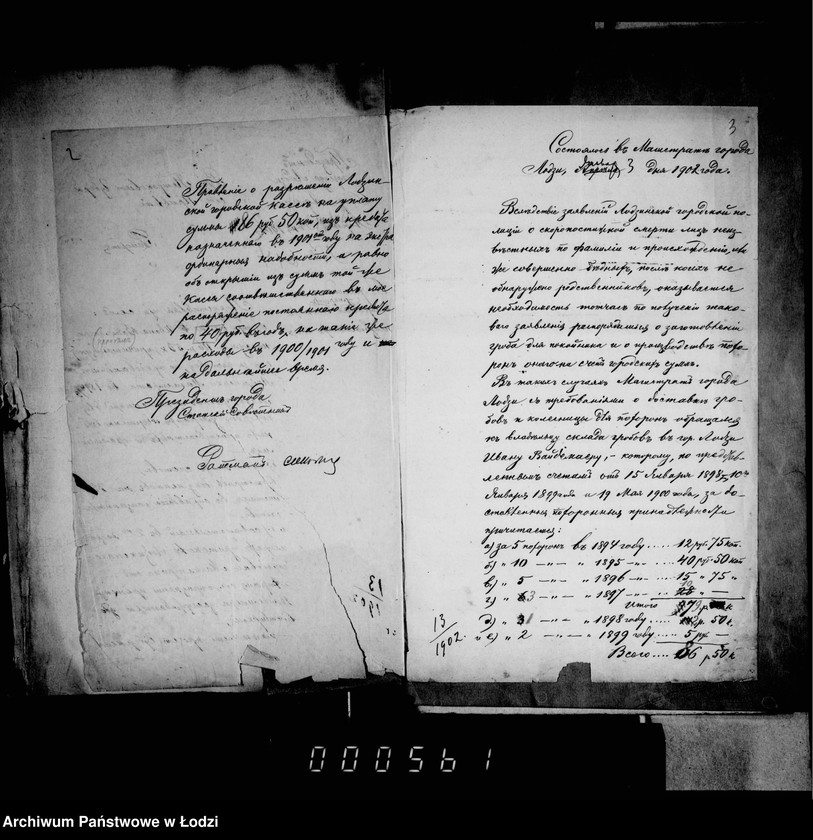 2
о разрешении Лодзин-
ской городской кассе на уплату
суммы 86 руб 50 коп, из кредита
назначеннаго в 1901 году на экстра
ординарныя надобности, а равно
объ открытии из сумм той-же
Кассы соответственнаго въ
распоряжение постояннаго кредита
по 40 руб. въ годъ, на такие же
расходы въ 1900/1901 году и
на дальнейшее время.
Президентъ города
Ратманъ
13
1902
3
Состоялся въ Магистрате города
Лодзи, 3 дня 1902 года.
Вследствие заявлений Лодзинской городской по-
лиции о скоропостижной смерти лицъ неиз-
вестныхъ по фамилии и происхождению,
же совершенно бедныхъ, после коихъ не
обнаружено родственниковъ, оказывается
необходимость тотчасъ по получении тако-
вого заявления распорядиться о заготовлении
гроба для покойника и о производстве похо-
ронъ онаго на счетъ городскихъ суммъ.
Въ такихъ случаяхъ Магистратъ города
Лодзи съ требованиями о доставке гро-
бовъ и колесницы для похоронъ обращался
къ владельцу склада гробовъ въ гор. Лодзи
Ивану Вайдемаеру, - которому, по предъяв-
леннымъ счетамъ отъ 15 Января 1898, 10
Января 1899 года и 19 Мая 1900 года, за до-
ставленныя похоронныя принадлежности
причитается:
а) за 5 похоронъ въ 1894 году ..... 12 руб. 75 коп.
б) " 10 — " — " 1895 — " — ... 40 руб. 50 коп
в) " 5 — " — " 1896 — " — .... 15 " 75 "
г) " 3 — " — " 1897 — " —
Итого
д) " — " — " 1898 году ..... р. 50 к.
е) " 2 — " — " 1899 году ..... 5 руб —
Всего .... 86 р. 50 к.
13
1902.
0005b1
Archiwum Państwowe w Łodzi